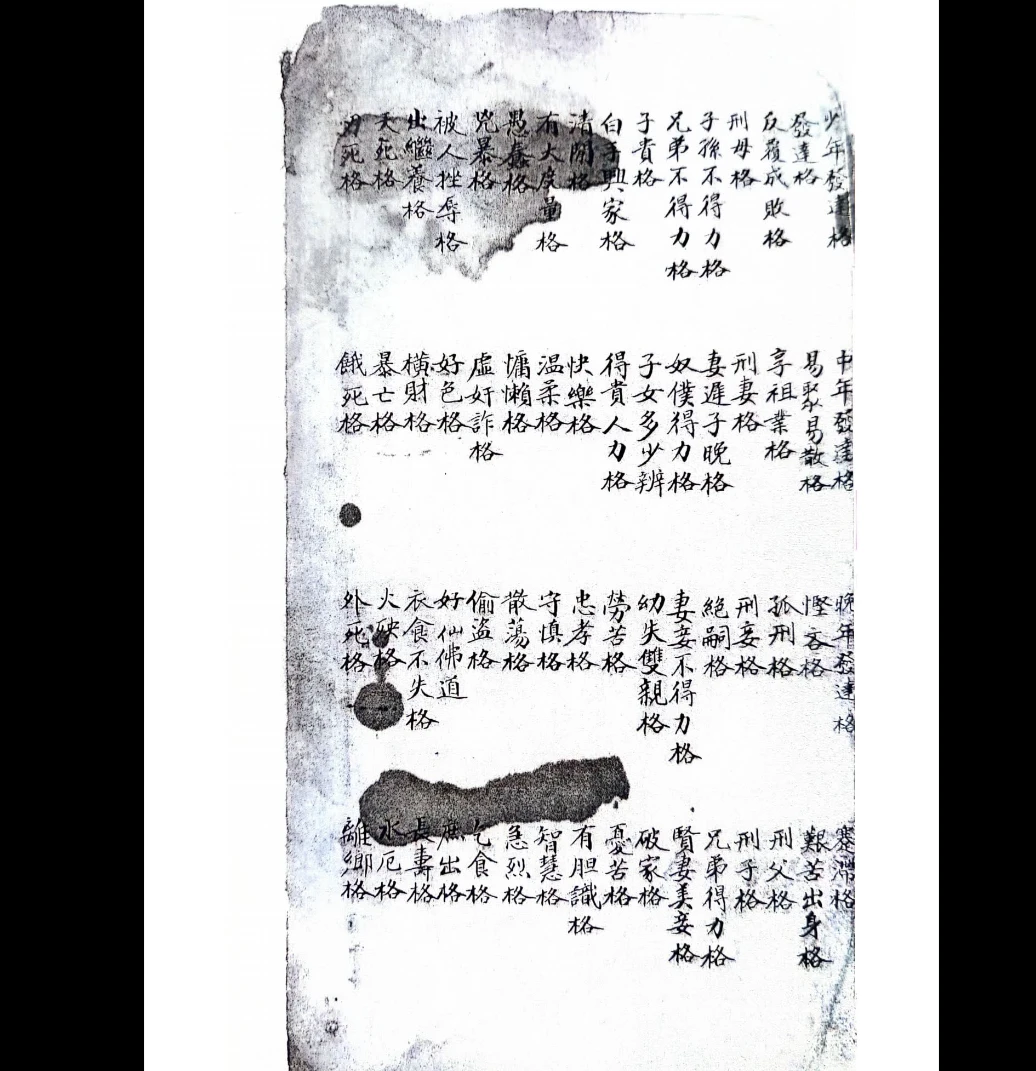 少年發達格 中年發達格 晚年發達格 蹇滯格
發達格 易聚易散格 慳吝格 艱苦出身格
反覆成敗格 享祖業格 孤刑格 刑父格
刑母格 刑妻格 刑妾格 刑子格
子孫不得力格 妻遲子晚格 絕嗣格 兄弟得力格
兄弟不得力格 奴僕得力格 妻妾不得力格 賢妻美妾格
子貴格 子女多少辨 幼失雙親格 破家格
白手興家格 得貴人力格 勞苦格 憂苦格
清閑格 快樂格 忠孝格 有胆識格
有大度量格 温柔格 守慎格 智慧格
愚蠢格 慵懶格 散蕩格 急烈格
兇暴格 虛奸詐格 偷盜格 乞食格
被人挫辱格 好色格 好仙佛道 庶出格
出繼養格 橫財格 衣食不失格 長壽格
夭死格 暴亡格 火殃格 水厄格
刃死格 餓死格 外死格 離鄉格